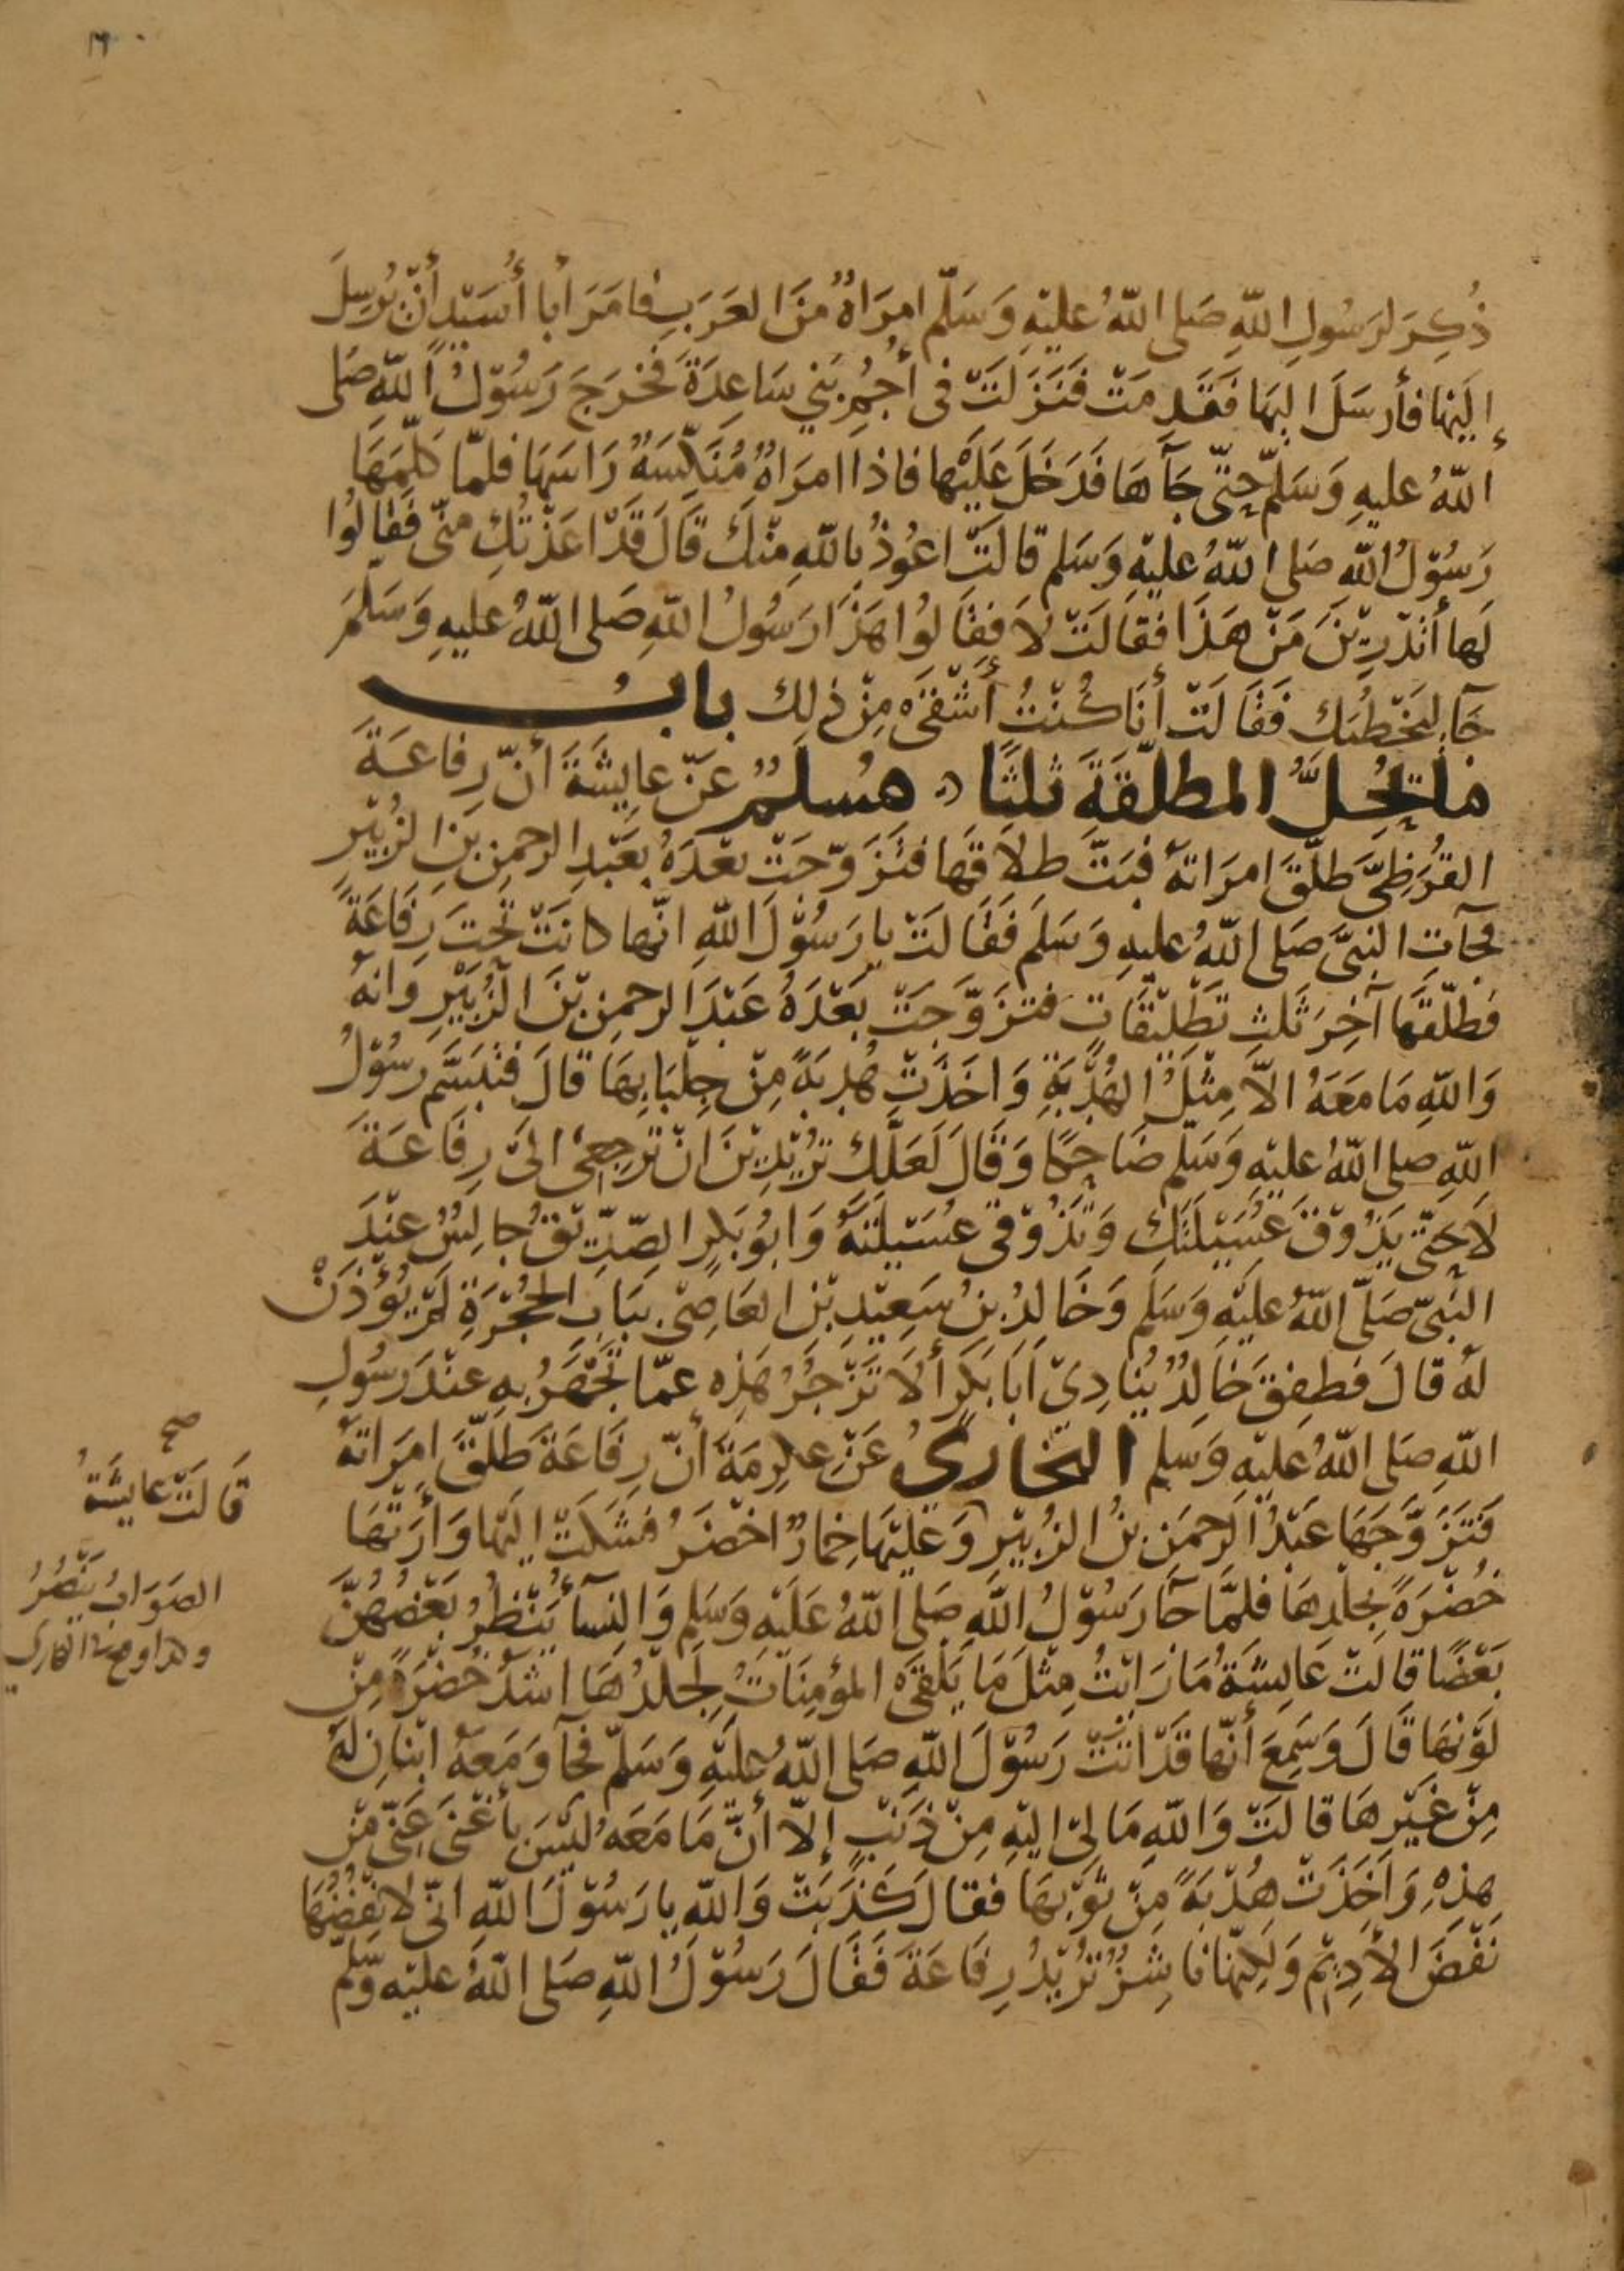 ١٦٠
ذُكِرَ لرَسُولِ اللهِ صَلى اللهُ عليْهِ وَسَلّم امرَاةٌ منَ العَرَبِ فامَرَ أبا أُسَيْدٍ أنْ يُرسِلَ
إلَيْها فأرسَلَ اليهَا فَقَدِمَتْ فَنَزَلَتْ فى أُجُمِ بَنِي سَاعِدَةَ فخرَجَ رَسُوْلُ اللهِ صَلى
اللهُ عليهِ وَسَلّم حتّى جَآهَا فَدَخَلَ عَلَيْها فاذا امرَاةٌ مُنَكِّسَةٌ رَاسَهَا فلمّا كلّمَهَا
رَسُوْلُ اللهِ صَلى اللهُ عليْهِ وَسَلم قالتْ اعُوذُ بِاللهِ مِنْكَ قَالَ قَدْ اعَذْتُكِ منّى فَقالُوا
لَها أتَدْرِيْنَ مَنْ هَذَا فقَالَتْ لَا فقَالُوا هَذَا رَسُولُ اللهِ صَلى اللهُ عليهِ وَسَلّمَ
جَآ لِيَخْطُبَك فَقَالَتْ أنَا كُنْتُ أشْقَى مِنْ ذلِك بابُ
ما تحِلُّ المطلّقَةَ ثلثًا مُسلمٌ عَنْ عايشَةَ أنّ رِفاعَةَ
القُرَظِيَّ طلّقَ امرَاتهُ فبَتّ طلاقَها فتَزَوّجَتْ بعْدَهُ بعَبْدِ الرحمنِ بنِ الزبَيْرِ
فجآتِ النبيَّ صَلى اللهُ عليهِ وَسَلمَ فَقَالَتْ يا رَسُوْلَ اللهِ انّها كانَتْ تحتَ رِفَاعَةَ
فطلّقَها آخِرَ ثَلثِ تطْلِيْقَاتٍ فتزَوّجَتْ بَعْدَهُ عَبْدَ الرحمنِ بْنَ الزُّبَيْرِ وَانهُ
وَاللهِ مَا مَعَهُ الاّ مِثْلُ الهُدْبَةِ وَاخَذَتْ هُدبَةً مِنْ جِلبَابِهَا قَالَ فتبَسّم رسُوْلُ
اللهِ صلى اللهُ عليْهِ وَسَلم ضَاحِكًا وَقَالَ لَعَلّكِ تُرِيْدِيْنَ انْ تَرجِعِىْ الىَ رِفَاعَةَ
لَا حتّى يَذُوْقَ عُسَيْلَتَكِ وَتَذُوْقى عُسَيْلَتَهُ وَابُو بَكرٍ الصِّدِّيْقُ جالِسٌ عِنْدَ
النبيّ صَلّى اللهُ عليْهِ وَسَلم وَخَالِدُ بنُ سَعِيْدِ بْنِ العَاصِىْ بِبَابِ الحُجْرَةِ لَمْ يُؤْذَنْ
لهُ قالَ فطفِقَ خَالِدٌ يُنَادِىْ اَبَا بَكرٍ ألَا تَزْجُرُ هَذِه عمّا تَجْهَرُ بهِ عنْدَ رسُولِ
اللهِ صَلى اللهُ عليْهِ وَسَلم البخارىُّ عَنْ عِكرِمَةَ أنّ رِفَاعَةَ طَلّقَ امرَاتهُ
فَتَزَوَّجَهَا عَبْدُ الرحمنِ بنُ الزُبيْرِ وَعَلَيْهَا خِمارٌ اخْضَرُ فشَكَتْ اليْهَا وَأرَتْهَا
خُضْرَةً بجلدِهَا فلمَّا جَآ رَسُوْلُ اللهِ صَلى اللهُ عَلَيْهِ وَسَلم وَالنِسآ يَنْظُرُ بَعْضُهُنَّ
بَعْضًا قالتْ عَايشَةُ مَا رَايْتُ مِثْلَ مَا يَلْقَى المؤمِنَاتُ لَجِلدُهَا اشَدُّ خُضرَةً مِنْ
لَوْنِهَا قَالَ وَسَمِعَ أنّها قَدْ اتَتْ رَسُوْلَ اللهِ صَلى اللهُ عليْهِ وَسَلّم فجآ وَمَعَهُ ابْنَانِ لَهُ
مِنْ غَيْرِهَا قالَتْ وَاللهِ مَا لِيْ اليْهِ مِنْ ذَنْبٍ إلّا أنّ مَا مَعَهُ ليْسَ بأغْنَى عَنّى مِنْ
هذِهِ وَاَخَذَتْ هُدْبَةً مِنْ ثَوْبِهَا فقالَ كَذَبَتْ وَاللهِ يا رَسُوْلَ اللهِ انّى لانفُضُهَا
نَفْضَ الأدِيْمِ وَلَكِنّهَا ناشِزٌ تُرِيْدُ رِفَاعَةَ فَقَالَ رَسُوْلُ اللهِ صَلى اللهُ عليْهِ وسّلم
صح
قَالَتْ عايشَةُ
الصَوَابُ يَنْصُرُ